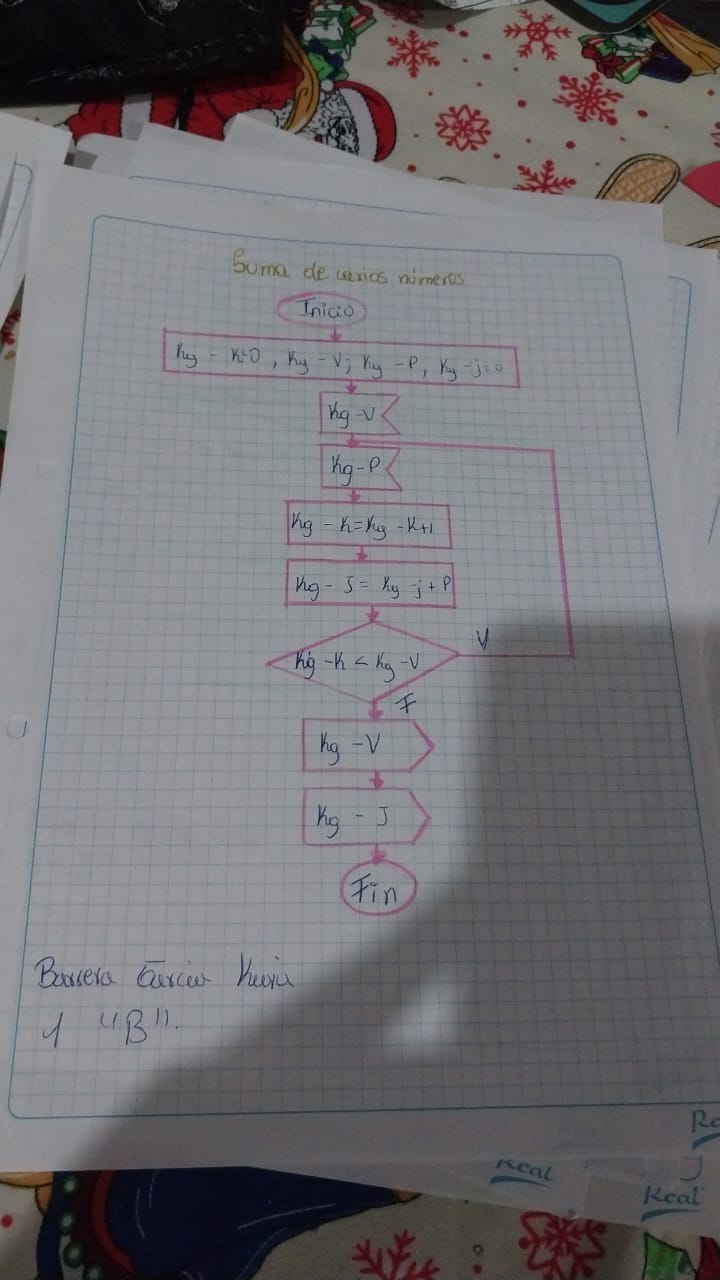 Suma de varios números
Inicio
Kg - K=0, Kg - V; Kg - P, Kg - j=0
Kg - V
Kg - P
Kg - K = Kg - K+1
Kg - J = Kg - j + P
V
Kg - K < Kg - V
F
Kg - V
Kg - J
Fin
Barrera García
1 "B".
Real
Real